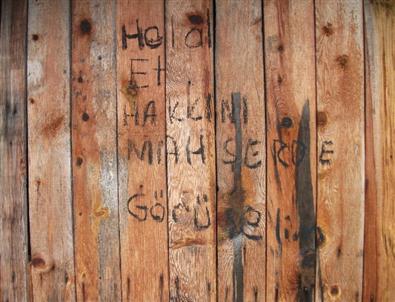 Helal
Et
HAKKINI
MAHSERDE
Görüselim